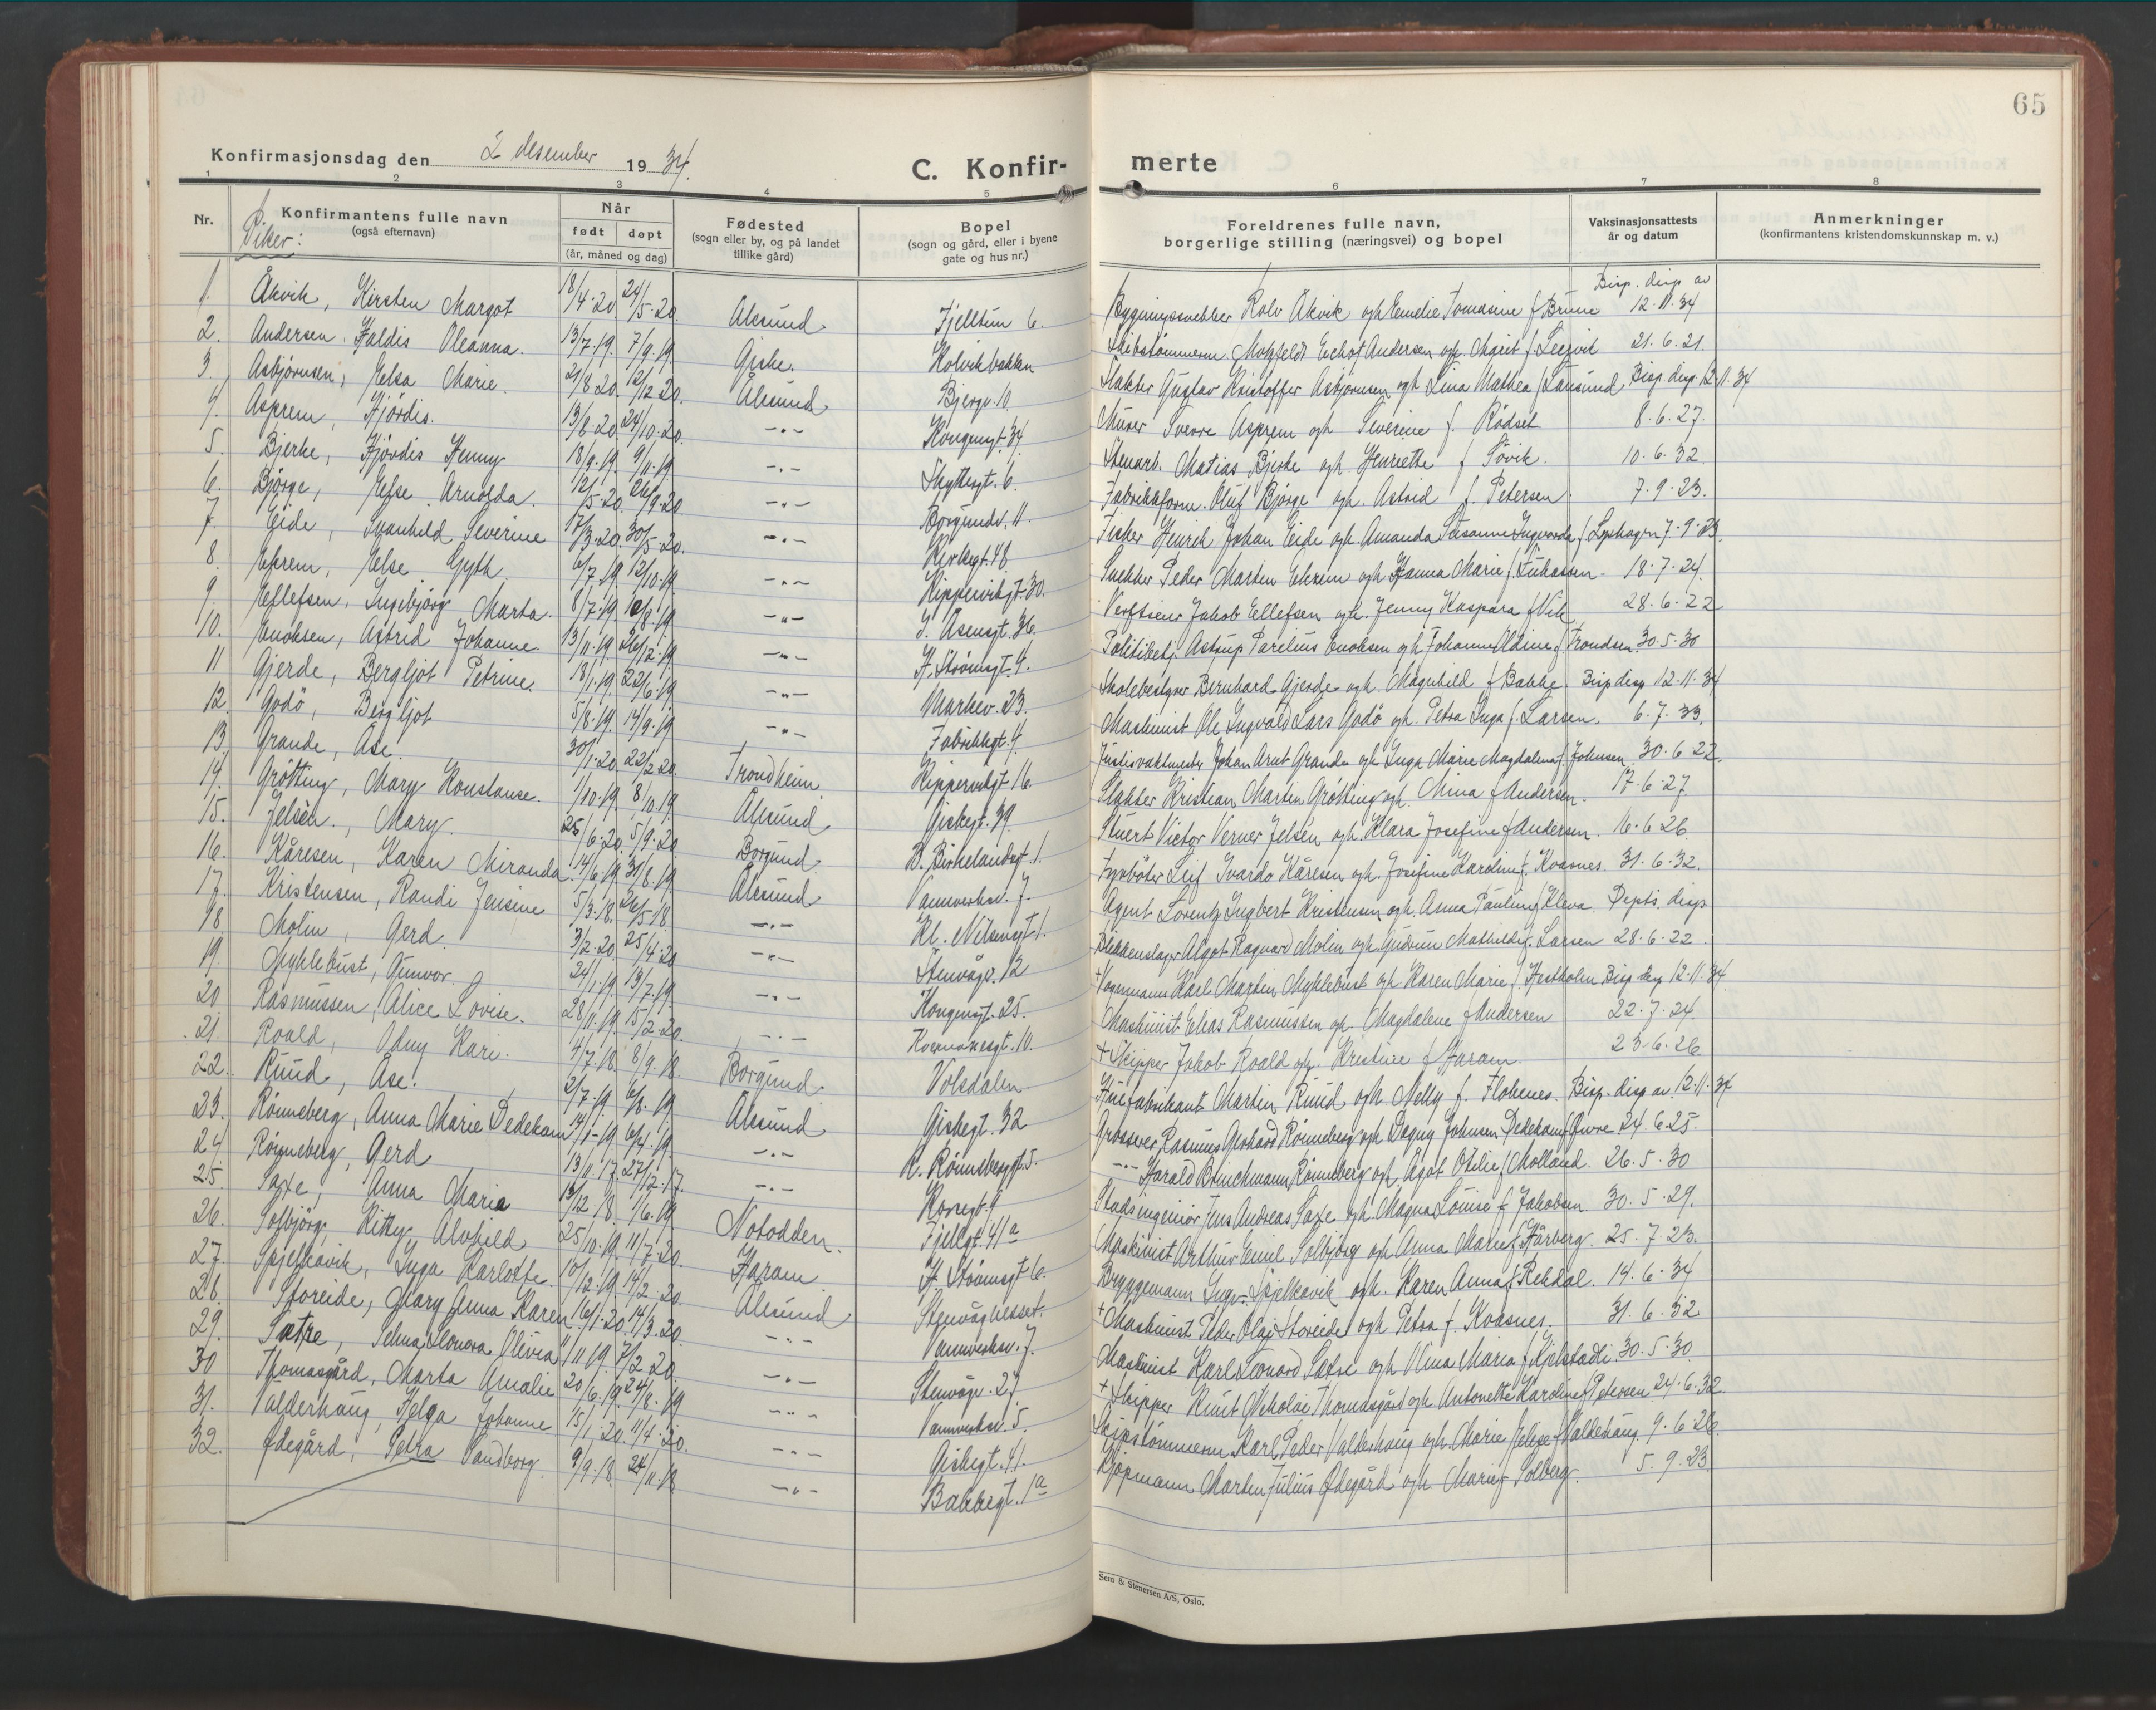 65
Konfirmasjonsdag den 2 desember 1934.
C. Konfir-merte
1 2 3 4 5 6 7 8
Nr. Konfirmantens fulle navn (også efternavn) Når født døpt (år, måned og dag) Fødested (sogn eller by, og på landet tillike gård) Bopel (sogn og gård, eller i byene gate og hus nr.) Foreldrenes fulle navn, borgerlige stilling (næringsvei) og bopel Vaksinasjonsattests år og datum Anmerkninger (konfirmantens kristendomskunnskap m. v.)
Piker:
Bisp. disp av
1. Åkvik, Kirsten Margot 18/4-20 24/5-20 Ålesund Fjelltun 6. Rolv Åkvik og h. Emelie Tomasine f. Brune 12.11.34
2. Andersen Haldis Oleanna. 13/7-19. 7/9-19 Giske. Kolvikbakken Andersen og h. Marit f. 21.6.21.
3. Asbjørnsen, Elsa Marie. 21/8 20. 12/12 20. Ålesund Bjergv. 10. Slakter Gustav Kristoffer Asbjørnsen og h. Lina Mathea f. Bisp. disp. 12.11.34
4. Asprem, Hjørdis. 13/8-20. 24/10-20. -"- Kongensgt. 34. Murer Sverre Asprem og h. Severine f. Rødset 8.6.27.
5. Bjerke, Hjørdis Jenny 18/9-19. 9/11-19. -"- Skyttergt. 6. Stenarb. Matias Bjerke og h. Henriette f. Søvik. 10.6.32.
6. Bjørge, Else Arnolda. 12/5-20. 26/9-20 -"- Borgundv. 11. Fabrikkform. Oluf Bjørge og h. Astrid f. Petersen 7.9.23.
7. Eide, Svanhild Severine 17/3-20. 30/5-20. -"- Kirkegt. 48. Fisker Henrik Johan Eide og h. Amanda Susanne Ingvarda f. 7.9.23.
8. Ekrem, Else Gyth 6/7-19 12/10-19. -"- Kipperviksgt 30. Snekker Peder Martin Ekrem og h. Hanna Marie f. 18.7.24.
9. Ellefsen, Ingebjørg Marta. 8/7-19 10/8-19 -"- I. Åsensgt. 36. Jakob Ellefsen og h. Jenny Kaspara f. Vik 28.6.22
10. Enoksen, Astrid Johanne. 13/11-19. 26/12-19 -"- H. Strømsgt. 4. Politibetj. Astrup Parelius Enoksen og h. Johanne Aldine f. Trondsen. 30.5.30
11 Gjerde, Bergljot Petrine. 18/1-19. 22/6-19. -"- Markev. 23. Skolebestyrer Bernhard Gjerde og h. Magnhild f. Bakke. Bisp. disp 12.11.34
12. Godø, Bergljot 5/8-19. 14/9-19 -"- Fabrikkgt. 4. Maskinist Ole Ingvald Lars Godø og h. Petra Inga f. Larsen. 6.7.33.
13. Grande, Åse. 30/1-20. 22/2 20. Trondheim. Kipperviksgt 16. Johan Arnt Grande og h. Inga Marie Magdalena f. Johnsen 30.6 22.
14. Grøtting, Mary Konstanse. 1/10-19. 8/10.19. Ålesund Giskegt. 39. Slakter Kristian Martin Grøtting og h. Mina f. Andersen. 17.6.27.
15. Jelsèn, Mary. 25/6-20. 5/9-20. Borgund. B. Birkelandsgt. 1. Stuert Victor Verner Jelsèn og h. Klara Josefine f. Andersen. 16.6 26.
16. Kåresen, Karen Miranda. 14/6-19. 31/8-19 Ålesund Vannverksv. 7. Fyrbøter Leif Kåresen og h. Josefine Karoline f. Kvasnes. 31.6.32.
17. Kristensen, Randi Jensine 5/3-18. 26/5-18. -"- Kl. Nilsensgt 1. Agent Lorentz Ingbert Kristensen og h. Anna Pauline f. Kleva. Depts. disp
18 Molin, Gerd. 3/2-20. 25/4-20 -"- Stenvågv. 12 Blikkenslager Algot Ragnard Molin og h. Gudrun Mathilde f. Larsen 28.6.22.
19 Myklebust, Gunvor. 24/1-19. 13/7-19 -"- Kongensgt. 25. + Vognmann Karl Martin Myklebust og h. Karen Marie f. Hestholm Bisp disp 12.11.34
20 Rasmussen, Alice Lovise. 28/11-19. 15/2-20. -"- Kvennanesgt. 10. Maskinist Elias Rasmussen og h. Magdalene f. Andersen 22.7.24.
21. Roald, Odny Kari. 4/7-18. 8/9-18. Borgund. Volsdalen. + Skipper Jakob Roald og h. Kristine f. Haram. 23.6.26
22. Ruud, Åse. 2/7-19. 6/8-19. Ålesund Giskegt. 32 Martin Ruud og h. Nelly f. Flohenes. Bisp. disp av 12.11.34
23. Rønneberg, Anna Marie Dedekam 14/1-19 6/4-19 -"- R. Rønnebergsgt. 5. Grosserer Rasmus Rønneberg og h. Dagny Johnsen Dedekam f. 24.6.25.
24. Rønneberg, Gerd 13/11-17. 27/12-17. -"- Korsegt. 9 -"- Harald Brinchmann Rønneberg og h. Ågot Otilie f. Molland. 26.5.30
25. Saxe, Anna Maria 13/12 18. 1/6-19 Notodden. Fjellgt. 41a Stadsingeniør Jens Andreas Saxe og h. Magna Louise f. Jakobsen. 30.5.29.
26. Solbjørg, Kitty Alvhild 25/10-19. 11/7-20. Haram H. Strømsgt 6. Maskinist Arthur Emil Solbjørg og h. Anna Marie f. Hårberg. 25.7.23.
27. Spjelkavik, Inga Karlotte. 10/12-19 14/2 20. Ålesund Stenvågnesset. Bryggemann Ingv. Spjelkavik og h. Karen Anna f. Rekdal. 14.6.34
28. Storeide, Mary Anna Karen 16/1-20. 14/3-20. -"- Vannverksv. 7. + Maskinist Peder Olai Storeide og h. Petra f. Kvasnes. 31.6.32
29. Sætre, Selma Leonora Olivia 1/11 19. 7/2 20. -"- Stenvågv. 27 Maskinist Karl Leonard Sætre og h. Olina Maria f. Kjelstadli. 30.5.30.
30 Thomasgård, Marta Amalie 20/6-19. 24/8-19 -"- Vannverksv. 5. + Skipper Knut Nikolai Thomasgård og h. Antonette Karoline f. Petersen 24.6.32.
31. Valderhaug, Helga Johanne 15/1-20. 11/4-20. -"- Giskegt. 41. Skipstømmerm. Karl Peder Valderhaug og h. Marie f. Valdehaug 9.6.26.
32. Ødegård, Petra Sandborg. 9/9-18. 24/11-18 -"- Bakkegt. 1a Kjøpmann Marten Julius Ødegård og h. Marie f. Solberg. 5.9.23
Sem & Stenersen A/S, Oslo.